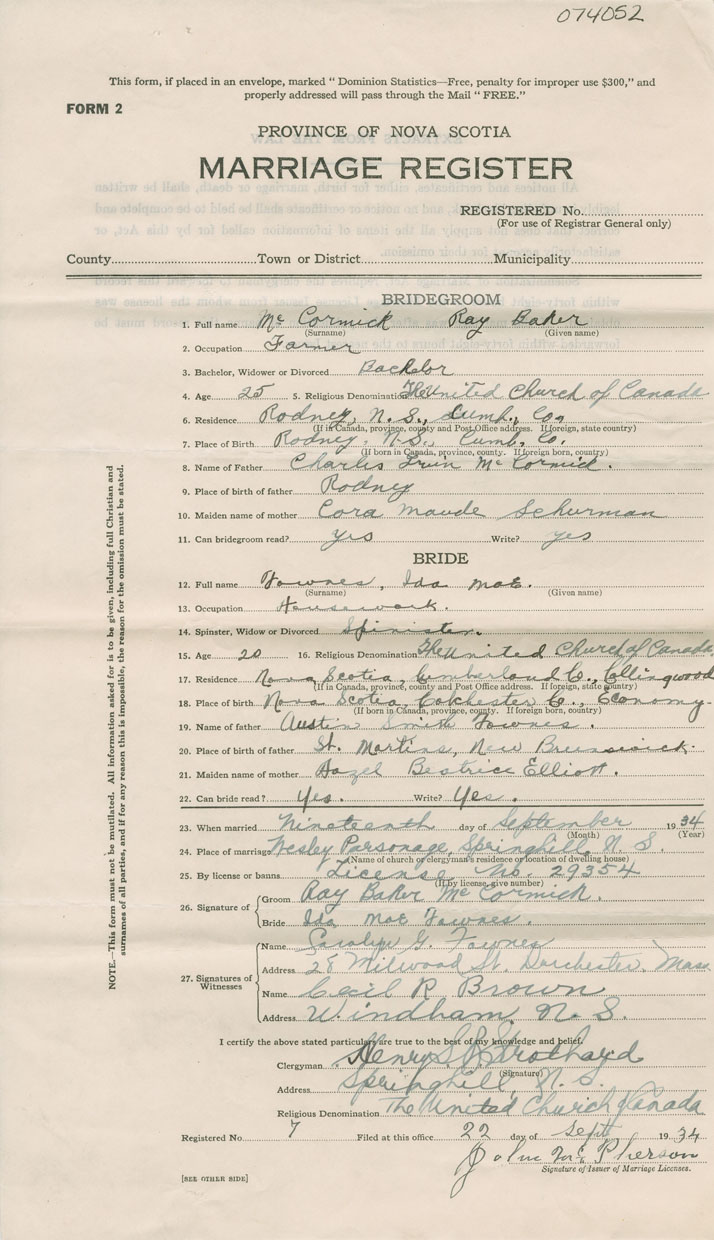 074052
This form, if placed in an envelope, marked “ Dominion Statistics—Free, penalty for improper use $300,” and
properly addressed will pass through the Mail “ FREE.”
FORM 2
PROVINCE OF NOVA SCOTIA
MARRIAGE REGISTER
REGISTERED No.
(For use of Registrar General only)
County Town or District Municipality
BRIDEGROOM
1. Full name McCormick Ray Baker
(Surname) (Given name)
2. Occupation Farmer
3. Bachelor, Widower or Divorced Bachelor
4. Age 25 5. Religious Denomination The United Church of Canada
6. Residence Rodney, N. S., Cumb., Co.
(If in Canada, province, county and Post Office address. If foreign, state country)
7. Place of Birth Rodney, N.S., Cumb, Co.
(If born in Canada, province, county. If foreign born, country)
8. Name of Father Charles Irvin McCormick.
9. Place of birth of father Rodney
10. Maiden name of mother Cora Maude Schurman
11. Can bridegroom read? yes Write? yes
BRIDE
12. Full name Fownes, Ida Mae.
(Surname) (Given name)
13. Occupation Housework.
14. Spinster, Widow or Divorced Spinister.
15. Age 20 16. Religious Denomination The United Church of Canada
17. Residence Nova Scotia, Cumberland Co., Collingwood
(If in Canada, province, county and Post Office address. If foreign, state country)
18. Place of birth Nova Scotia, Colchester Co., Economy.
(If born in Canada, province, county. If foreign born, country)
19. Name of father Austin Smith Fownes.
20. Place of birth of father St. Martins, New Brunswick.
21. Maiden name of mother Hazel Beatrice Elliott.
22. Can bride read? Yes. Write? Yes.
23. When married Nineteenth day of September 1934
(Month) (Year)
24. Place of marriage Wesley Parsonage, Springhill, N. S.
(Name of church or clergyman's residence or location of dwelling house)
25. By license or banns License No. 29354
(If by license, give number)
26. Signature of Groom Ray Baker McCormick.
Bride Ida Mae Fownes.
27. Signatures of Witnesses
Name Carolyn G. Fownes
Address 28 Milwood St. Dorchester, Mass
Name Cecil R Brown
Address Windham N. S.
I certify the above stated particulars are true to the best of my knowledge and belief.
Clergyman Henry S. B. Strothard
(Signature)
Address Springhill, N. S.
Religious Denomination The United Church of Canada
Registered No. 7 Filed at this office 22 day of Sept 1934
John McPherson
Signature of Issuer of Marriage Licenses.
[SEE OTHER SIDE]
NOTE.—This form must not be mutilated. All information asked for is to be given, including full Christian and
surnames of all parties, and if for any reason this is impossible, the reason for the omission must be stated.